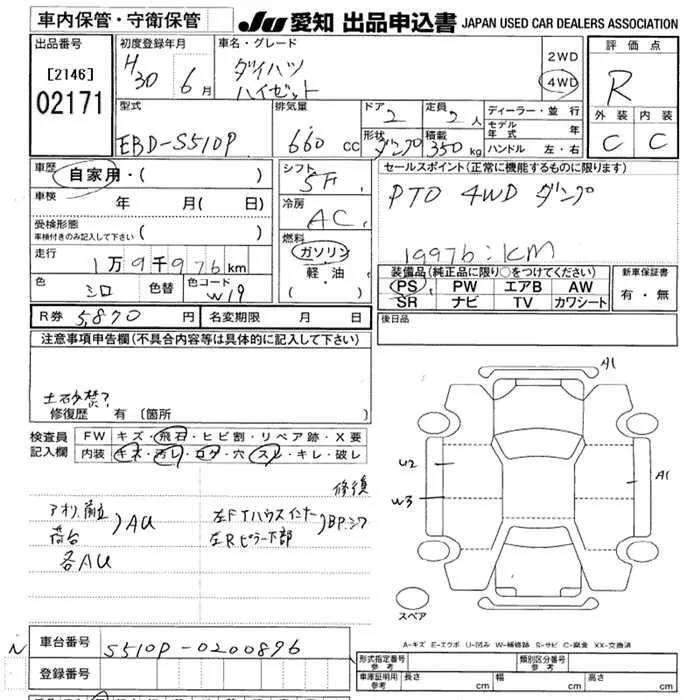 車内保管・守衛保管
JU 愛知 出品申込書 JAPAN USED CAR DEALERS ASSOCIATION
出品番号
[2146]
02171
初度登録年月
H30 6月
車名・グレード
ダイハツ
ハイゼット
2WD
4WD
評価点
R
外装 内装
C C
型式
EBD-S510P
排気量
660 cc
ドア
2
形状
ダンプ
定員
2人
積載
350kg
ディーラー・並行
モデル年式 年
ハンドル 左・右
車歴
自家用・( )
車検
年 月( 日)
受検形態
車検付きのみ記入して下さい
( )
走行
1万9千976km
色
シロ
色替
色コード
W19
シフト
5F
冷房
AC
燃料
ガソリン
軽・油
( )
セールスポイント(正常に機能するものに限ります)
PTO 4WD ダンプ
19976:KM
装備品(純正品に限り○をつけてください)
PS PW エアB AW
SR ナビ TV カワシート
新車保証書
有・無
後日品
R券 5,870円
名変期限 月 日
注意事項申告欄(不具合内容等は具体的に記入して下さい)
土砂禁?
修復歴 有〔箇所 〕
検査員記入欄
FW キズ・飛石・ヒビ割・リペア跡・X要
内装 キズ・汚レ・コゲ・穴・スレ・キレ・破レ
修復
アオリ、前立
荷台
)AU
各AU
左FTハウスインナー
左Rピラー下部
)BP.シワ
A1
U2
W3
A1
スペア
A-キズ E-エクボ U-凹み W-補修跡 S-サビ C-腐食 XX-交換済
N
車台番号
S510P-0200896
登録番号
形式指定番号
参考
類別区分番号
参考
車庫証明用
参考
長さ cm
幅 cm
高さ cm